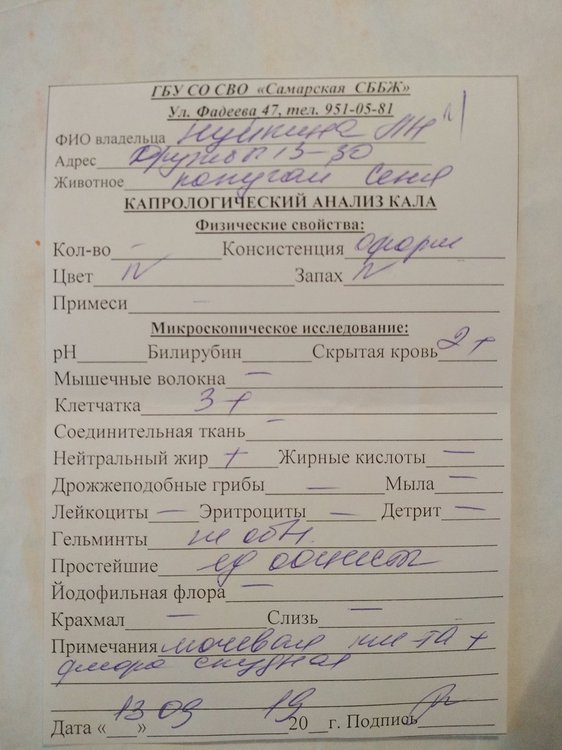 ГБУ СО СВО «Самарская СББЖ»
Ул. Фадеева 47, тел. 951-05-81
ФИО владельца
Адрес 13-30
Животное попугай Сеня
КАПРОЛОГИЧЕСКИЙ АНАЛИЗ КАЛА
Физические свойства:
Кол-во – Консистенция оформ
Цвет N Запах N
Примеси –
Микроскопическое исследование:
рН Билирубин Скрытая кровь 2+
Мышечные волокна –
Клетчатка 3+
Соединительная ткань –
Нейтральный жир + Жирные кислоты –
Дрожжеподобные грибы – Мыла –
Лейкоциты – Эритроциты – Детрит –
Гельминты не обн.
Простейшие ед ооцисты
Йодофильная флора –
Крахмал – Слизь –
Примечания мочевая к-та +
флора скудная
Дата «13» 09 19 20 г. Подпись